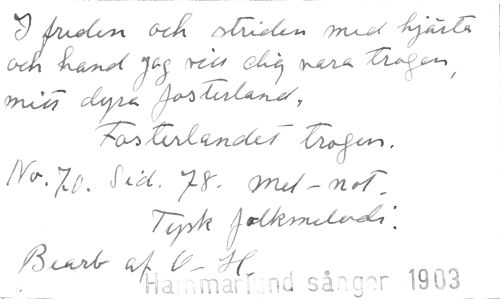 I friden och striden med hjärta
och hand jag vill dig vara trogen,
mitt dyra fosterland.
Fosterlandet trogen.
No. 70. Sid. 78. Mel-not.
Tysk folkmelodi.
Bearb af O-H
Hammarlund sånger 1903